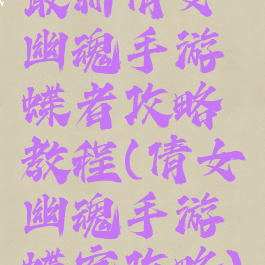 最新倩女
幽魂手游
蝶者攻略
教程(倩女
幽魂手游
蝶客攻略)